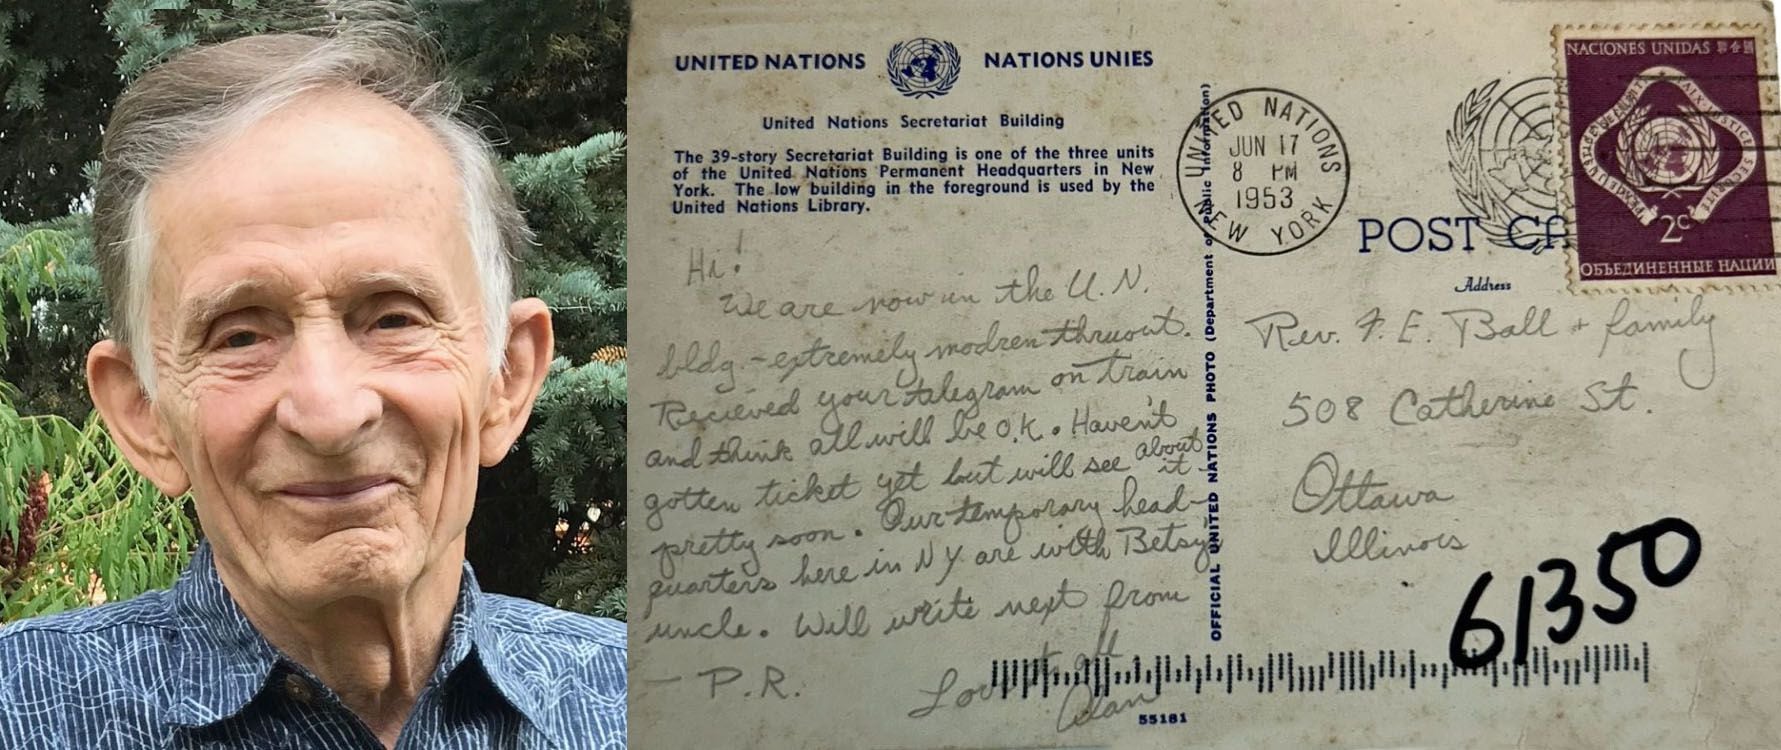 UNITED NATIONS NATIONS UNIES
United Nations Secretariat Building
The 39-story Secretariat Building is one of the three units
of the United Nations Permanent Headquarters in New
York. The low building in the foreground is used by the
United Nations Library.
Hi!
We are now in the U.N.
bldg - extremely modren thruout.
Recieved your telegram on train
and think all will be O.K. Haven't
gotten ticket yet but will see about it
pretty soon. Our temporary head-
quarters here in NY are with Betsy's
uncle. Will write next from
— P.R.
Love to all
Alan
55181
OFFICIAL UNITED NATIONS PHOTO (Department of Public Information)
UNITED NATIONS
JUN 17
8 PM
1953
NEW YORK
NACIONES UNIDAS
2c
ОБЪЕДИНЕННЫЕ НАЦИИ
POST CA
Address
Rev. F. E. Ball + family
508 Catherine St.
Ottawa
Illinois
61350